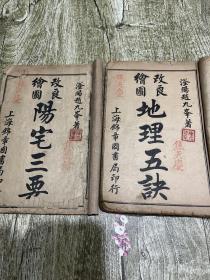 滏陽趙九峯著
改良
繪圖
地理五訣
上海錦章圖書局印行
滏陽趙九峯著
改良
繪圖
陽宅三要
上海錦章圖書局印行